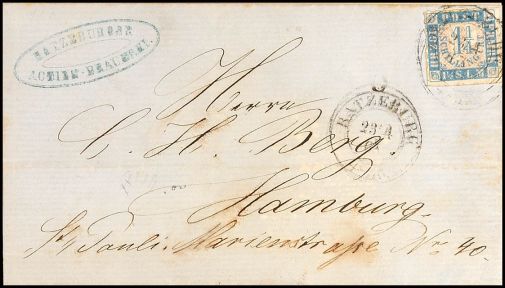 RATZEBURGER
ACTIEN-BRAUEREI.
HRZGL
POST
FRMRK
1¼
SCHILLING
1⅓ S.L.M.
RATZEBURG
23 4
Herrn
C. H. Berg.
Hamburg.
St Pauli. Marienstraße No 40.